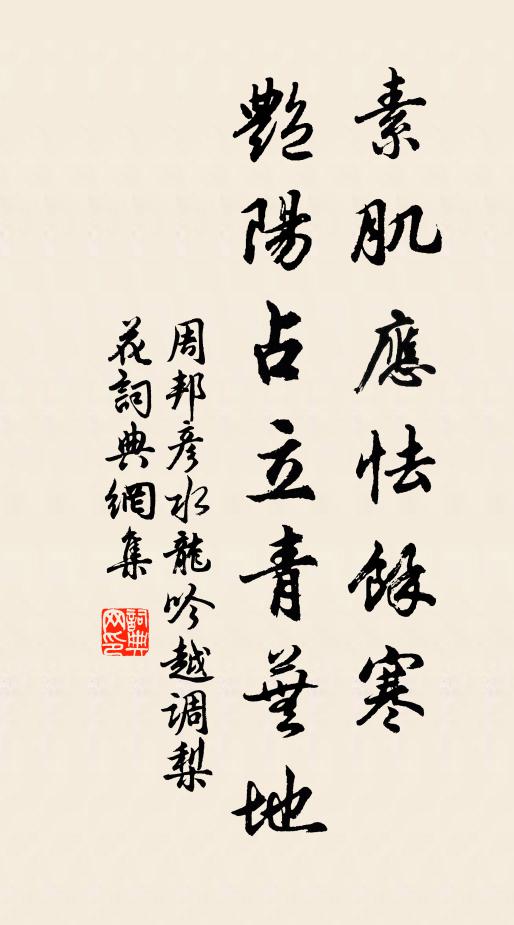 素肌應怯餘寒
艷陽占立青蕪地
周邦彥水龍吟越調梨
花詞典網集
詞典
网印